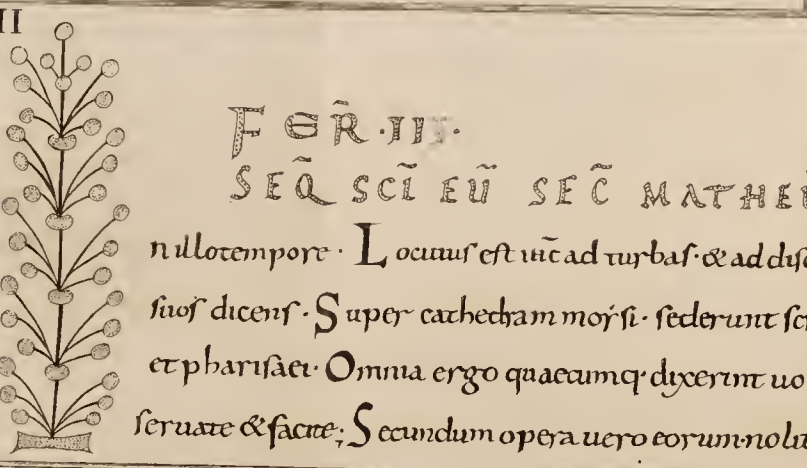 II
FER̃·III·
SEQ̃ SCĨ EŨ SEC̃ MATHEŨ
n illo tempore· Locutus est ihc̄ ad turbas· & ad disc
suos dicens· Super cathedram moysi· sederunt scr
et pharisaei· Omnia ergo quaecumq· dixerint uo
seruate & facite; Secundum opera uero eorum· nolit